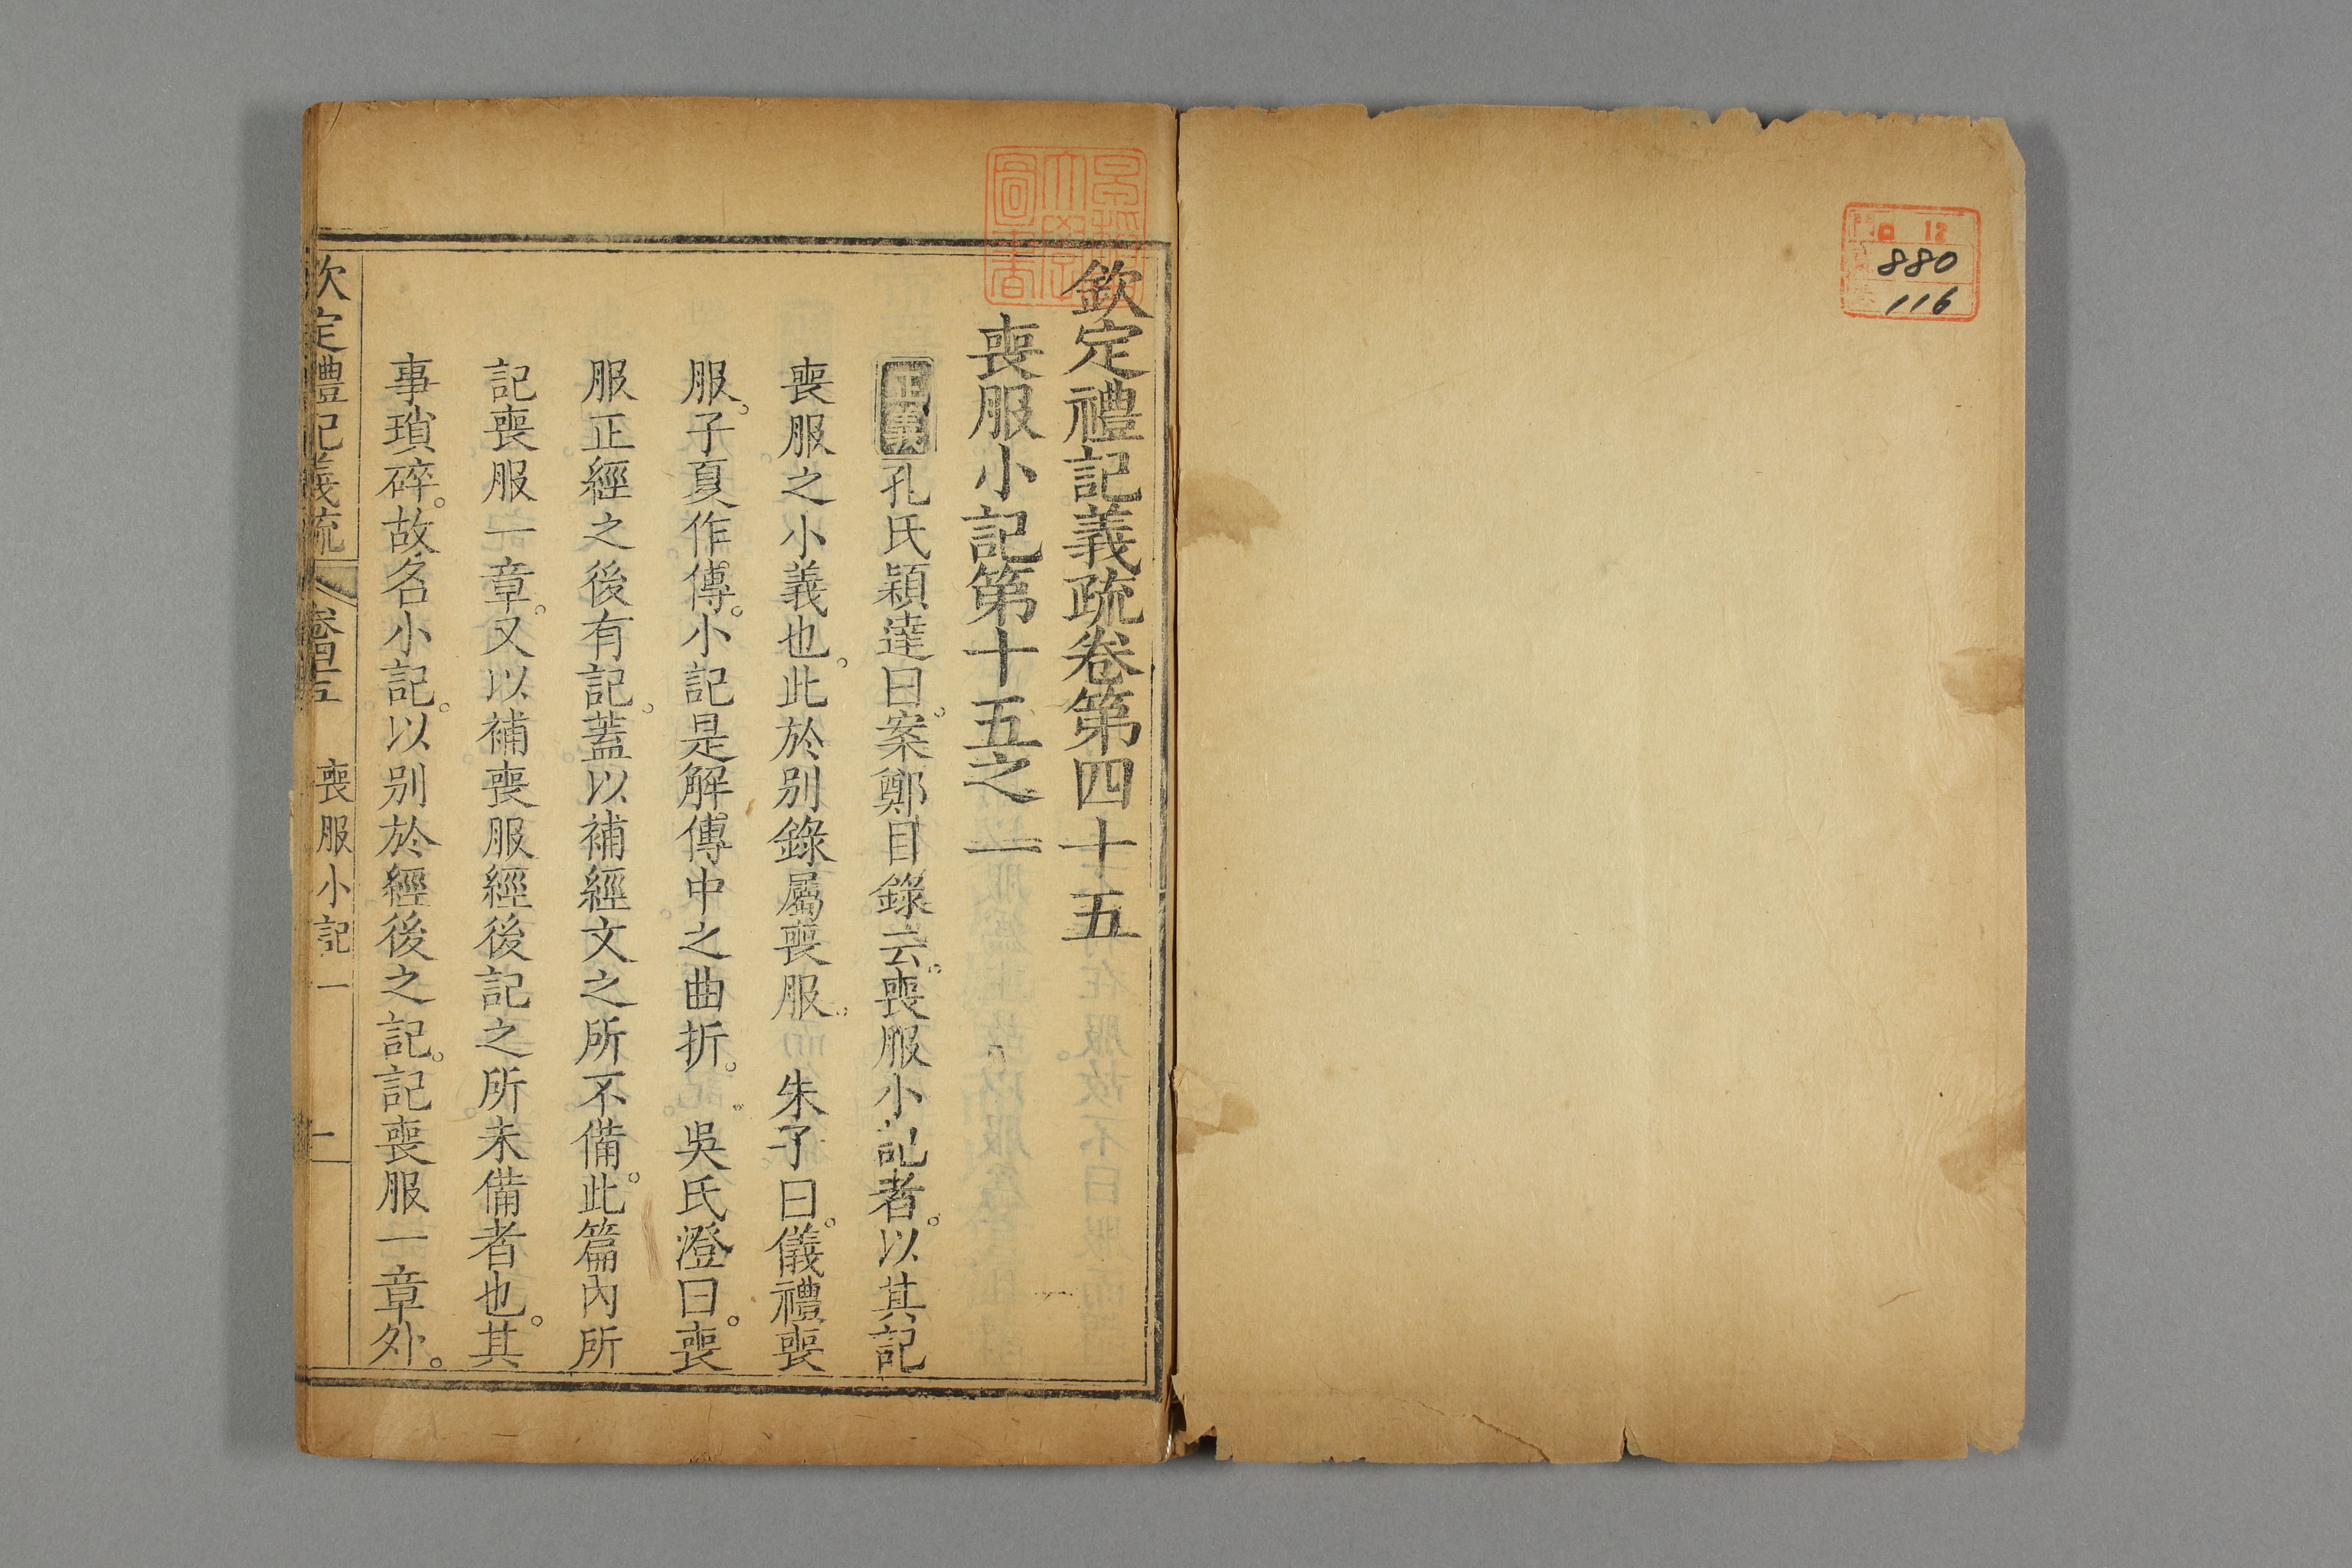 口 12
880
116
早稲田大學圖書
欽定禮記義疏卷第四十五
喪服小記第十五之一
正義孔氏穎達曰案鄭目錄云喪服小記者以其記
喪服之小義也此於別錄屬喪服 朱子曰儀禮喪
服子夏作傳小記是解傳中之曲折 吳氏澄曰喪
服正經之後有記蓋以補經文之所不備此篇內所
記喪服一章又以補喪服經後記之所未備者也其
事瑣碎故名小記以別於經後之記記喪服一章外
欽定禮記義疏 卷四十五 喪服小記一 一